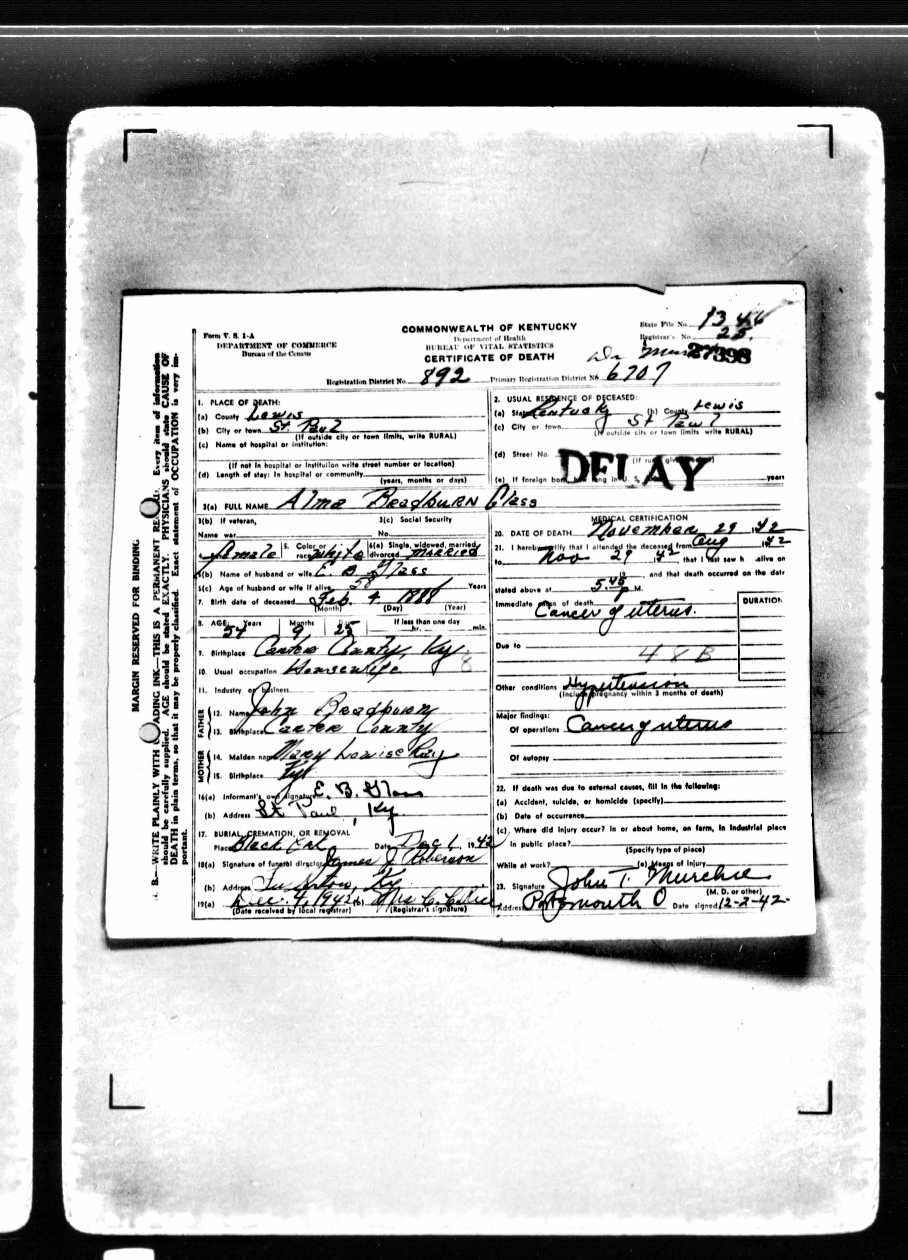 MARGIN RESERVED FOR BINDING
B.—WRITE PLAINLY WITH UNFADING INK—THIS IS A PERMANENT Every item of information
should be carefully supplied. AGE should be stated EXACTLY. PHYSICIANS should state CAUSE OF
DEATH in plain terms, so that it may be properly classified. Exact statement of OCCUPATION is very im-
portant.
Form V. S. 1-A
DEPARTMENT OF COMMERCE
Bureau of the Census
COMMONWEALTH OF KENTUCKY
Department of Health
BUREAU OF VITAL STATISTICS
CERTIFICATE OF DEATH
State File No. 1346
Registrar's No. 25.
Dr 27398
Registration District No. 892
Primary Registration District No 6707
1. PLACE OF DEATH:
(a) County Lewis
(b) City or town St Paul
(If outside city or town limits, write RURAL)
(c) Name of hospital or institution:
(If not in hospital or institution write street number or location)
(d) Length of stay: In hospital or community
(years, months or days)
2. USUAL RESIDENCE OF DECEASED:
(a) State Kentucky (b) County Lewis
(c) City or town St Paul
(If outside city or town limits write RURAL)
(d) Street No.
DELAY
(e) If foreign born, how long in U. S. years
3(a) FULL NAME Alma Bradburn Glass
3(b) If veteran,
Name war
3(c) Social Security
No.
Female 5. Color or race white 6(a) Single, widowed, married, divorced MARRIED
6(b) Name of husband or wife E. B Glass
6(c) Age of husband or wife if alive 58 Years
7. Birth date of deceased Feb. 4 1888
(Month) (Day) (Year)
8. AGE: Years 54 Months 9 25 If less than one day
hr. min.
9. Birthplace Carter County Ky
8
10. Usual occupation Housewife
11. Industry or business
FATHER
12. Name John Bradburn
13. Birthplace Carter County
MOTHER
14. Maiden name Mary Louise Ray
15. Birthplace Ky
16(a) Informant's own signature E. B. Glass
(b) Address St Paul, Ky.
17. BURIAL, CREMATION, OR REMOVAL
Place Black Oak Date Dec 1, 1942
18(a) Signature of funeral director James J Roberson
(b) Address Ky.
19(a) Dec. 9, 1942 (b) Mrs C. C.
(Date received by local registrar) (Registrar's signature)
MEDICAL CERTIFICATION
20. DATE OF DEATH November 29 1942
21. I hereby certify that I attended the deceased from Aug 1942
to Nov 29 1942, that I last saw h alive on
19 , and that death occurred on the date
stated above at 5 45 P M.
DURATION
Immediate cause of death
Cancer of uterus.
Due to
48B
Other conditions Hypertension
(Include pregnancy within 3 months of death)
Major findings:
Of operations Cancer of uterus
Of autopsy
22. If death was due to external causes, fill in the following:
(a) Accident, suicide, or homicide (specify)
(b) Date of occurrence
(c) Where did injury occur? In or about home, on farm, in industrial place
in public place?
(Specify type of place)
While at work? (e) Means of injury
23. Signature John T. Murchie
(M. D. or other)
Address Portsmouth O Date signed 12-2-42-